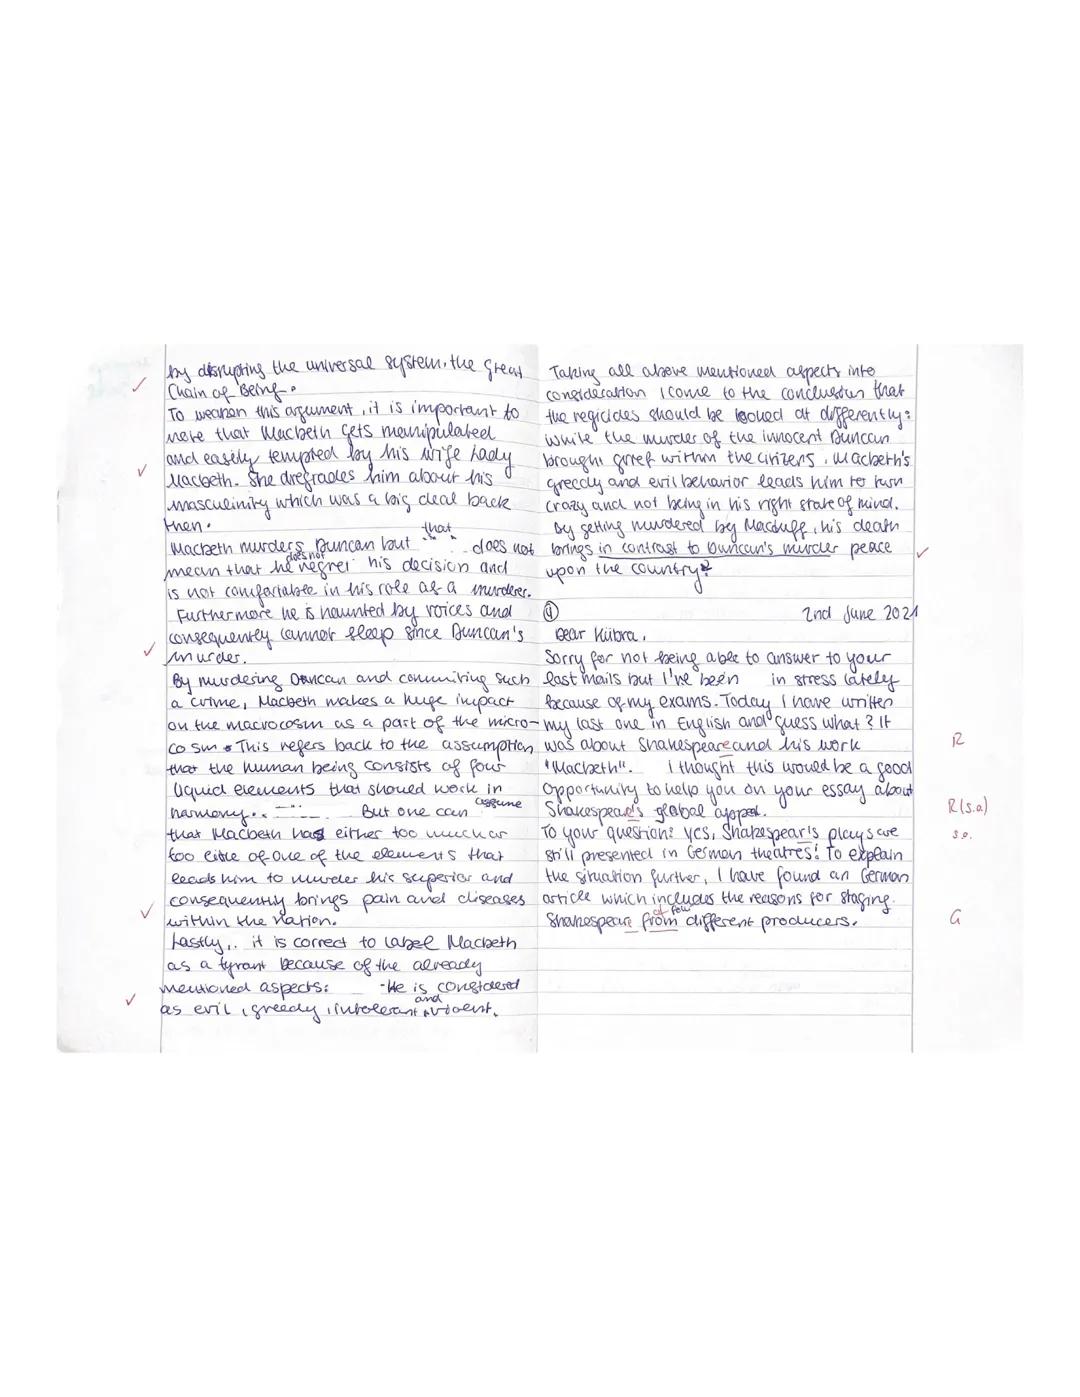 by disrupting the universal system, the great
Chain of Being.
To weaken this argument, it is important to
note that Macbeth gets manipulated
and easily tempted by his wife Lady
Macbeth. She degrades him about his
masculinity which was a big deal back
then.
that
Macbeth murders Duncan but does not
does not
mean that he regret his decision and
is not comfortable in his role as a murderer.
Furthermore he is haunted by voices and
consequently cannot sleep since Duncan's
murder.
By murdering Duncan and commiting such
a crime, Macbeth makes a huge impact
on the macrocosm as a part of the micro-
cosm. This refers back to the assumption
that the human being consists of four
liquid elements that should work in
harmony. But one can assume
that Macbeth has either too much or
too little of one of the elements that
leads him to murder his superior and
consequently brings pain and diseases
within the nation.
Lastly, it is correct to label Macbeth
as a tyrant because of the already
mentioned aspects: He is considered
and
as evil, greedy, intolerant, violent.
Taking all above mentioned aspects into
consideration I come to the conclusion that
the regicides should be looked at differently:
While the murder of the innocent Duncan
brought grief within the citizens, Macbeth's
greedy and evil behavior leads him to turn
crazy and not being in his right state of mind.
By getting murdered by Macduff, his death
brings in contrast to Duncan's murder peace
upon the country.
④ 2nd June 2021
Dear Kübra,
Sorry for not being able to answer to your
last mails but I've been in stress lately
because of my exams. Today I have written
my last one in English and guess what? It
was about Shakespeare and his work R
"Macbeth". I thought this would be a good
opportunity to help you on your essay about
Shakespear's global appeal. R(s.a)
To your question: yes, Shakespear's plays are s.o.
still presented in German theatres! To explain
the situation further, I have found an German
article which includes the reasons for staging
of few
Shakespeare from different producers. G